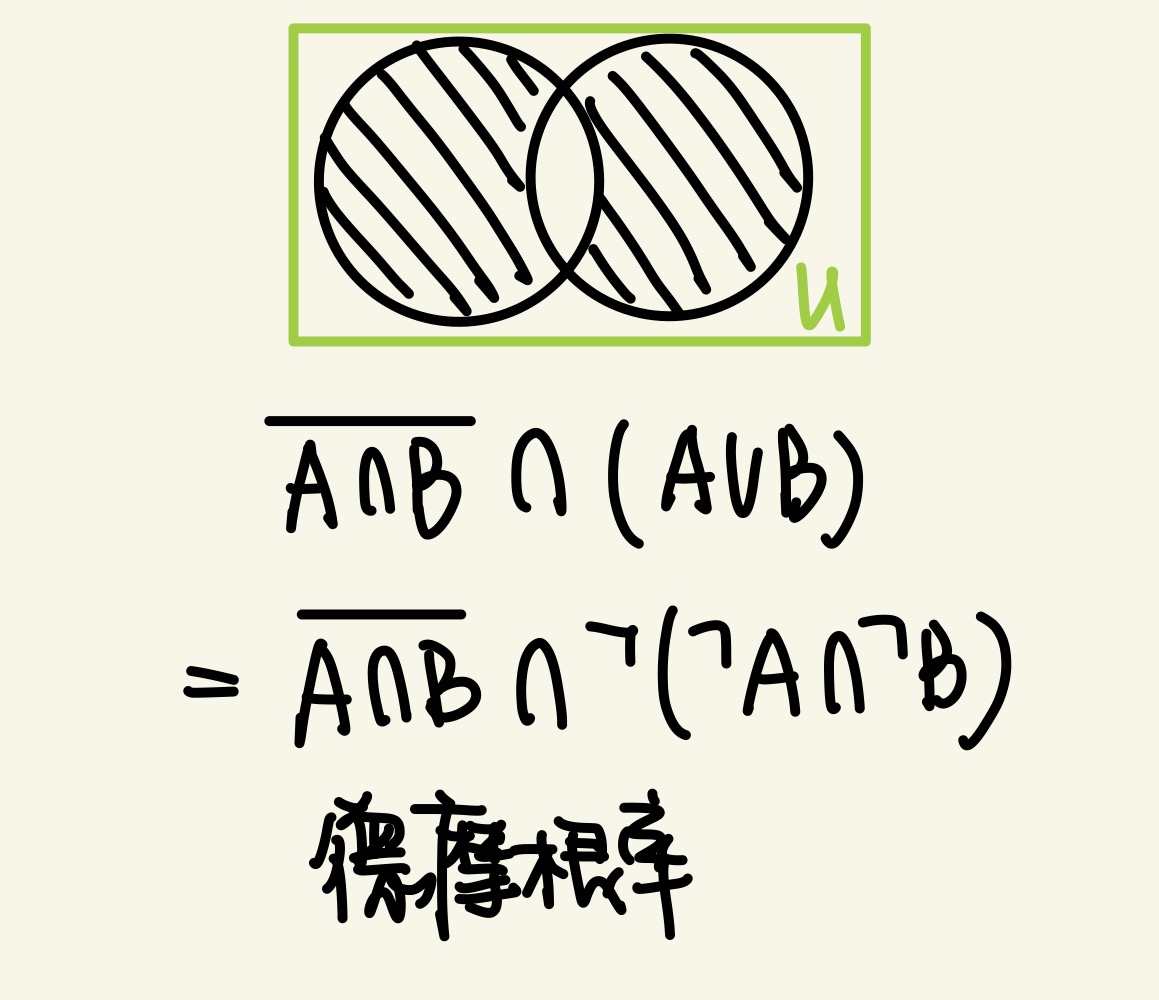 U
A∩B̅ ∩ (A∪B)
= A∩B̅ ∩ ¬(¬A∩¬B)
德摩根率